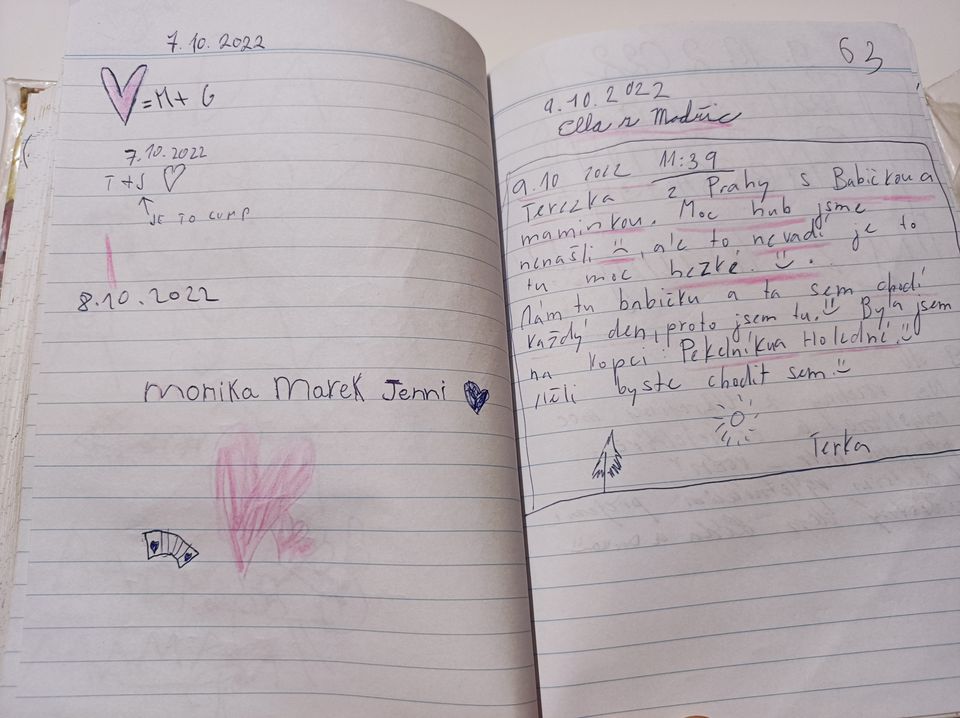 7.10.2022
= M + G
7.10.2022
T + J
JE TO CUMP
8.10.2022
Monika Marek Jenni
63
9.10.2022
Ella z Modřic
9.10 2022 11:39
Terezka z Prahy s Babičkou a
maminkou. Moc hub jsme
nenašli, ale to nevadí je to
tu moc hezké.
Mám tu babičku a ta sem chodí
každý den, proto jsem tu. Byla jsem
na kopci Holedné.
byste chodit sem
Terka